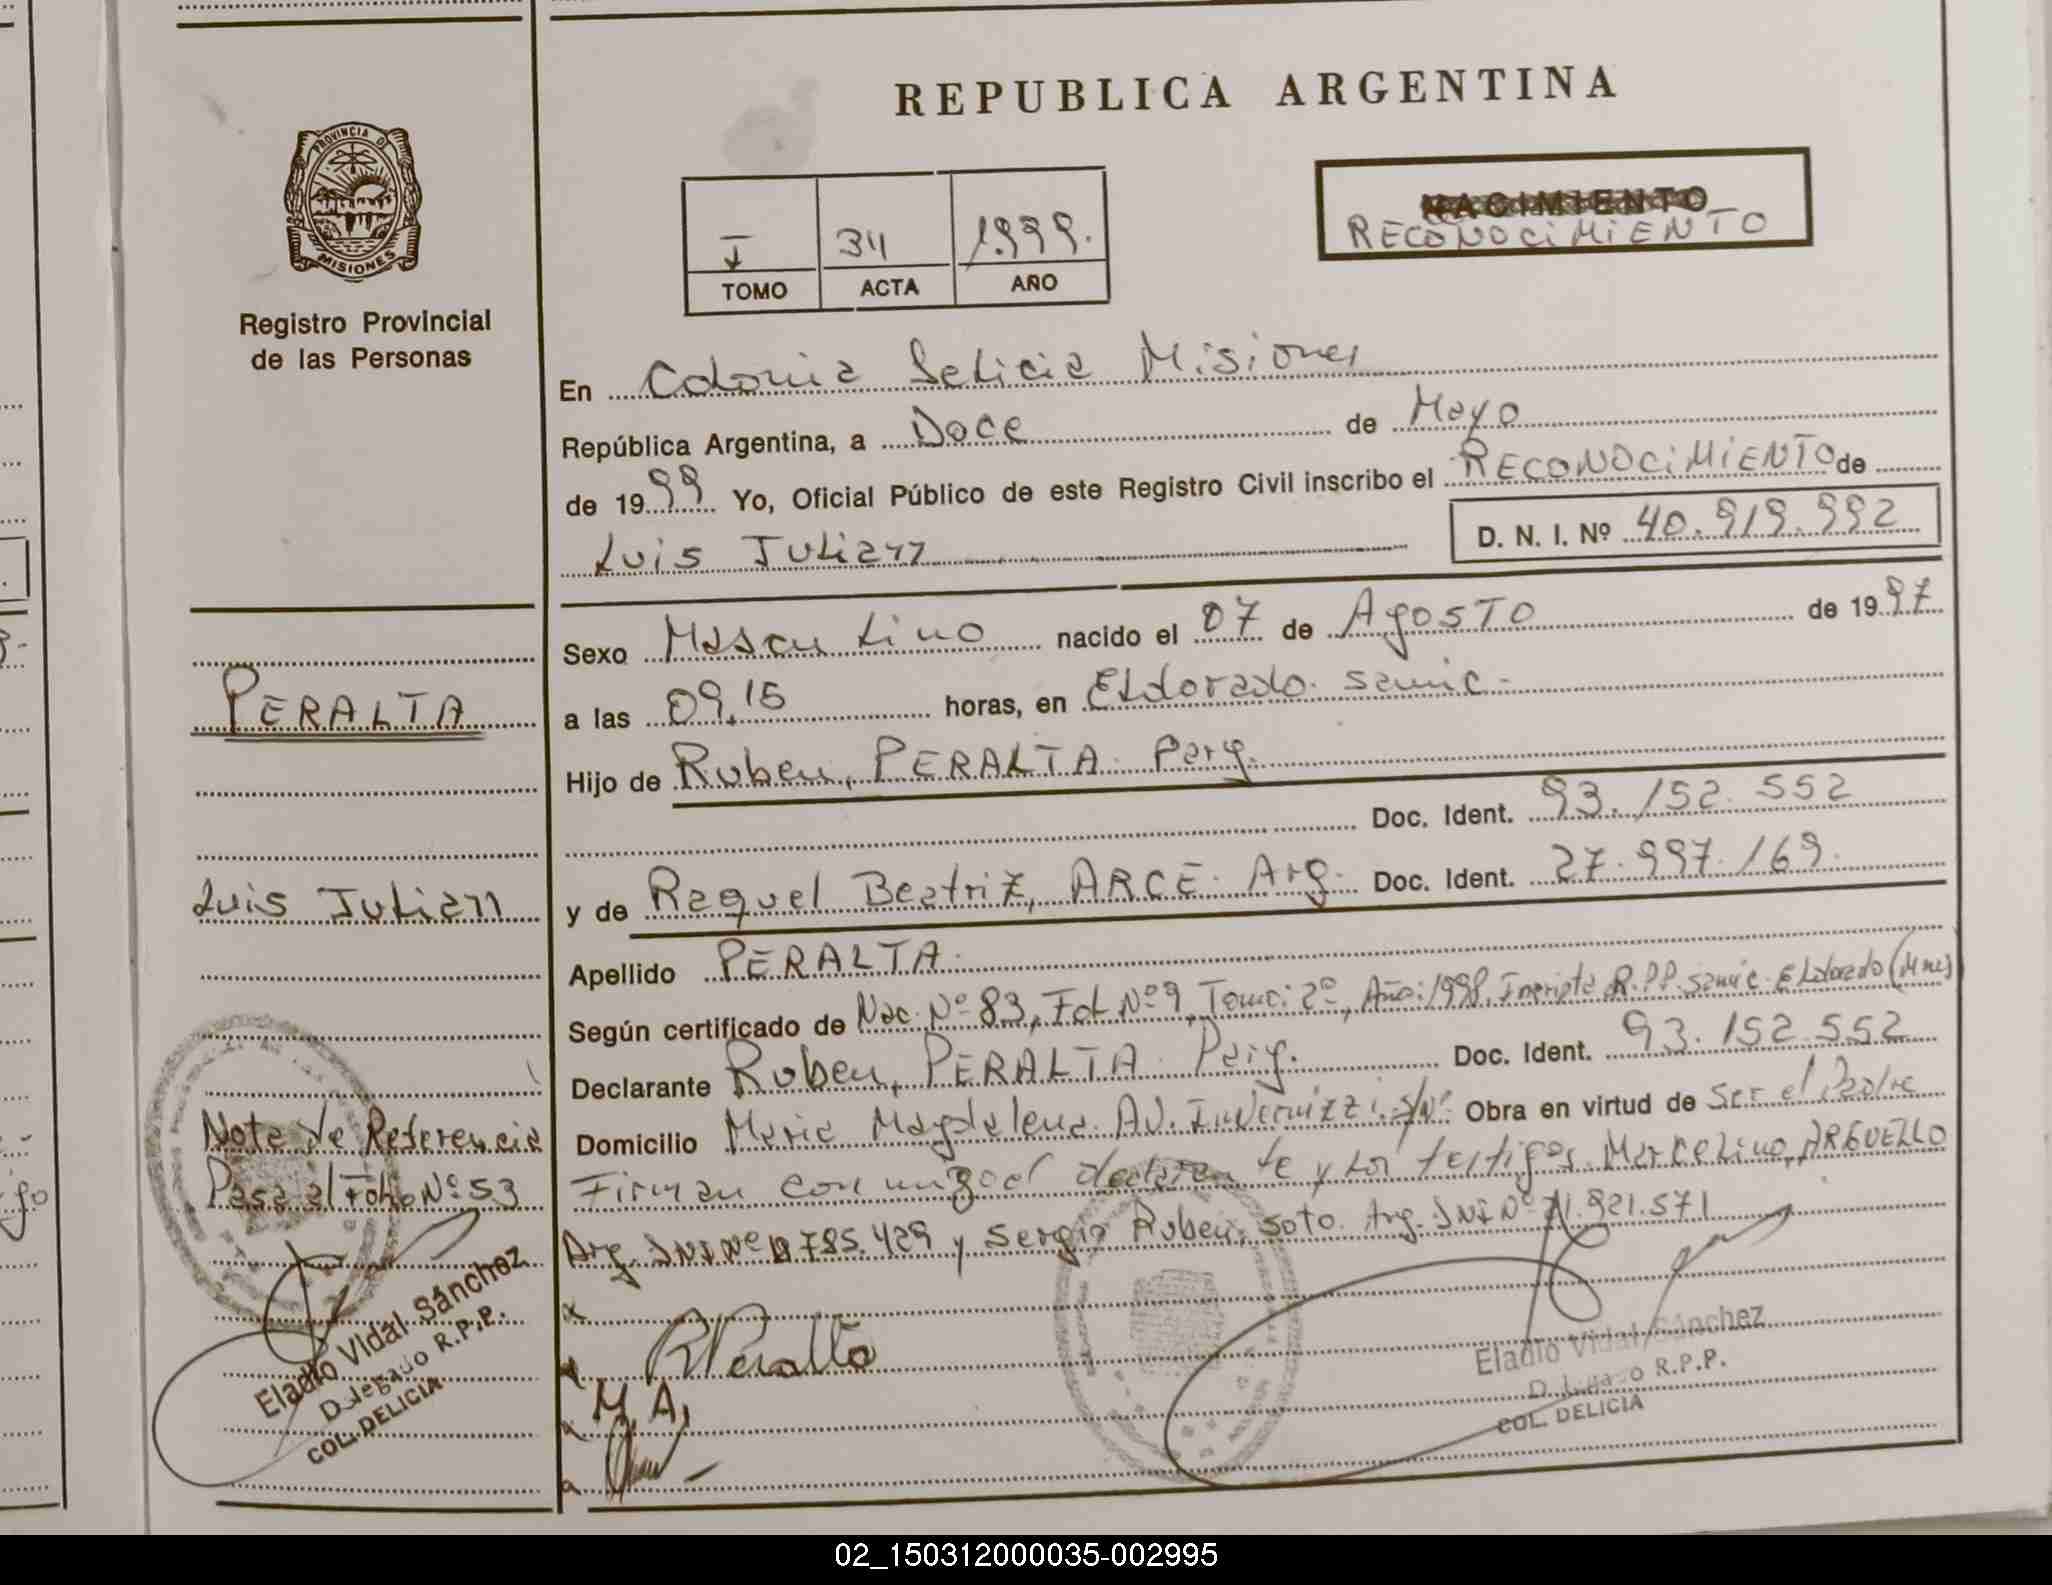 REPUBLICA ARGENTINA
PROVINCIA DE
MISIONES
Registro Provincial
de las Personas
I 34 1.999.
TOMO ACTA AÑO
NACIMIENTO
RECONOCIMIENTO
En Colonia Delicia Misiones
República Argentina, a Doce de Mayo
de 1999 Yo, Oficial Público de este Registro Civil inscribo el RECONOCIMIENTO de
Luis Julian D. N. I. Nº 40.919.992
Sexo Masculino nacido el 07 de Agosto de 1997
a las 09,15 horas, en Eldorado samic.
Hijo de Ruben, PERALTA Parg.
Doc. Ident. 93.152.552
y de Raquel Beatriz, ARCE. Arg. Doc. Ident. 27.997.169.
Apellido PERALTA.
Según certificado de Nac. Nº 83, Fol Nº 9, Tomo: 2º, Año: 1998, Inscripta R.P.P. samic. Eldorado (Mnes)
Declarante Ruben, PERALTA Parg. Doc. Ident. 93.152.552
Domicilio Maria Magdalena. AV. Invernizzi. S/Nº Obra en virtud de ser el Padre
Firman conmigo el declarante y los testigos Marcelino, ARGUELLO
Arg. DNI Nº 785.429 y Sergio Ruben, Soto. Arg. DNI Nº .921.571
PERALTA
Luis Julian
Nota de Referencia
Pasa al Folio Nº 53
Eladio Vidal Sánchez
Delegado R.P.P.
COL. DELICIA
RPeralta
M.A.
Eladio Vidal Sánchez
Delegado R.P.P.
COL. DELICIA
02_150312000035-002995